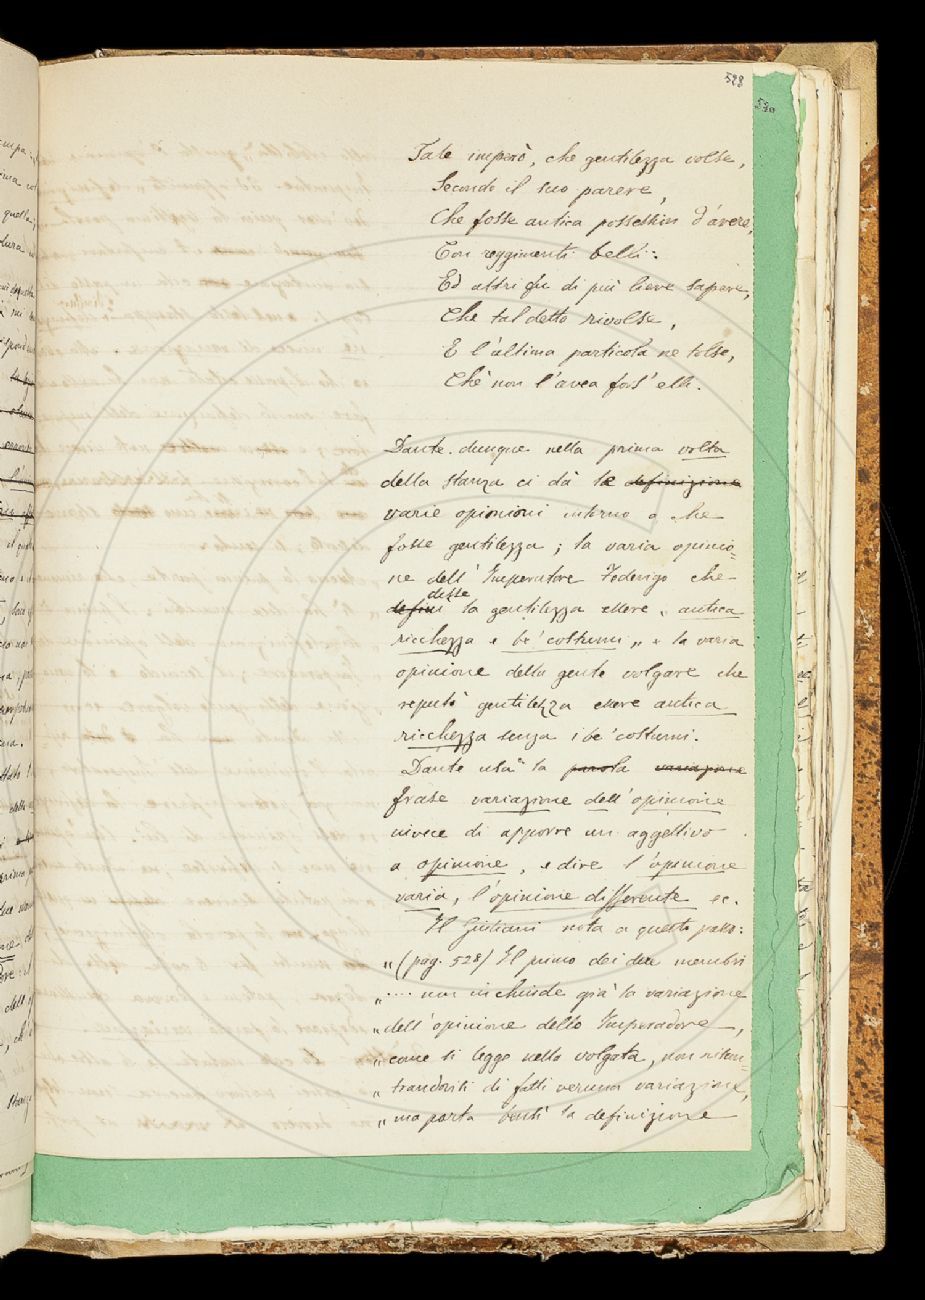 528
530
Tale imperò, che gentilezza volse,
Secondo il suo parere,
Che fosse antica possession d'avere,
Con reggimenti belli:
Ed altri fu di più lieve sapere,
Che tal detto rivolse,
E l'ultima particola ne tolse,
Chè non l'avea fors' elli.
Dante dunque nella prima volta
della stanza ci dà le definizione
varie opinioni intorno a che
fosse gentilezza; la varia opinio=
ne dell' Imperatore Federigo che
disse
definì la gentilezza essere „ antica
ricchezza e be' costumi „ e la varia
opinione della gente volgare che
reputò gentilezza essere antica
ricchezza senza i be' costumi.
Dante usa la parola variazione
frase variazione dell' opinione
invece di apporre un aggettivo
a opinione, e dire l'opinione
varia, l'opinione differente ec.
Il Giuliani nota a questo passo:
„ (pag. 528) Il primo dei due membri
„ .... non inchiude già la variazione
„ dell' opinione dello Imperadore —,
„ come si legge nella volgata, non riscon-
„ trandositi di fatti veruna variazione,
„ ma porta bensì la definizione